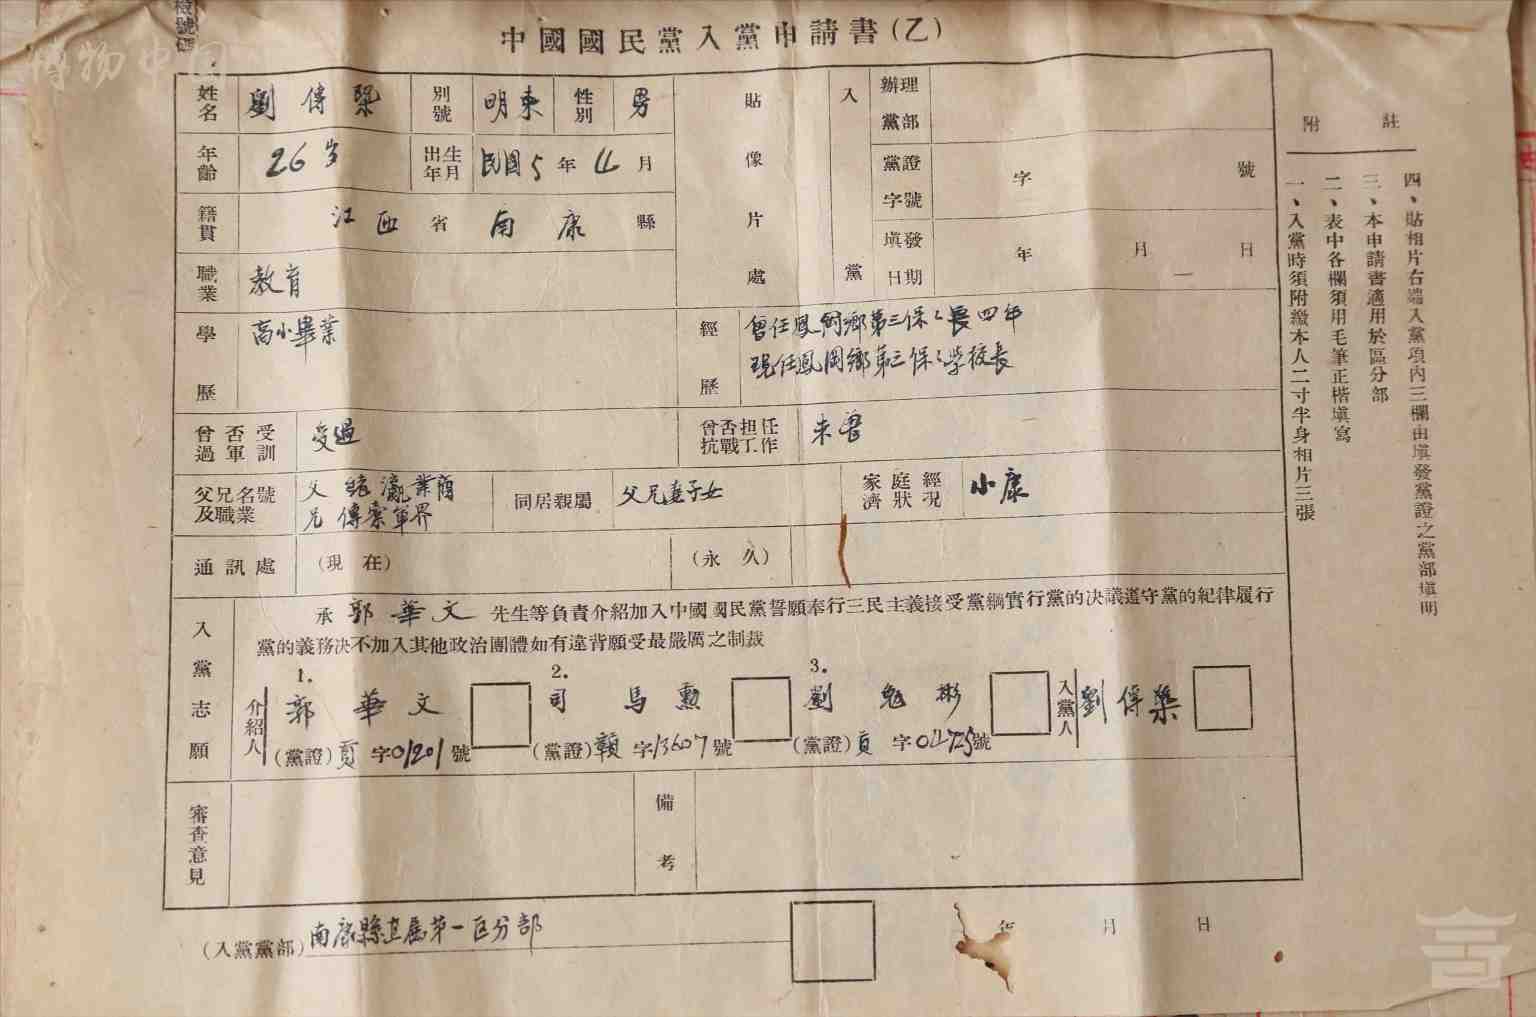 博物中国
中國國民黨入黨申請書(乙)
姓名 劉傳 別號 明東 性別 男
年齡 26岁 出生年月 民國5年4月
籍貫 江西省南康縣
職業 教育
學歷 高小畢業
貼像片處
入黨
辦理黨部
黨證字號 字 號
填發日期 年 月 日
經歷 曾任鳳岡鄉第三保〻長四年
現任鳳岡鄉第三保〻學校長
曾否受過軍訓 受過
曾否担任抗戰工作 未曾
父兄名號及職業 父 瀛業商
兄 傳 軍界
同居親屬 父兄妻子女
家庭經濟狀況 小康
通訊處 (現在) (永久)
入黨志願
承 郭華文 先生等負責介紹加入中國國民黨誓願奉行三民主義接受黨綱實行黨的決議遵守黨的紀律履行
黨的義務決不加入其他政治團體如有違背願受最嚴厲之制裁
介紹人
1. 郭華文
(黨證) 字01201號
2. 司馬勲
(黨證)贛字13607號
3. 劉 彬
(黨證) 字04725號
入黨人 劉傳
審查意見
備考
(入黨黨部)南康縣直屬第一区分部
年 月 日
附註
一、入黨時須附繳本人二寸半身相片三張
二、表中各欄須用毛筆正楷填寫
三、本申請書適用於區分部
四、貼相片右端入黨項內三欄由填發黨證之黨部填明